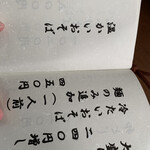 温かいおそば
冷たいおそば
麺のみ追加(一人前)
四五〇円
大盛
二四〇円増し